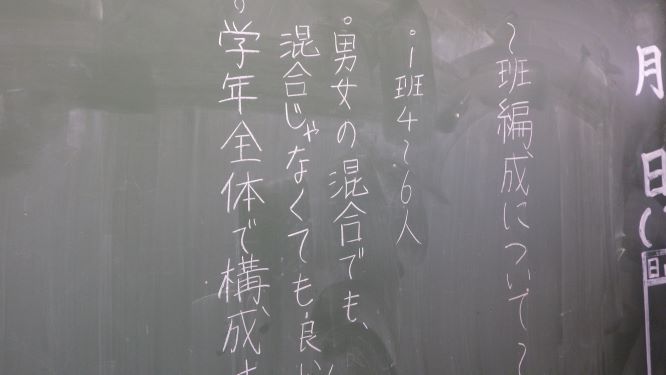 月
日(
日
〜班編成について〜
・1班4〜6人
・男女の混合でも、
混合じゃなくても良い
・学年全体で構成